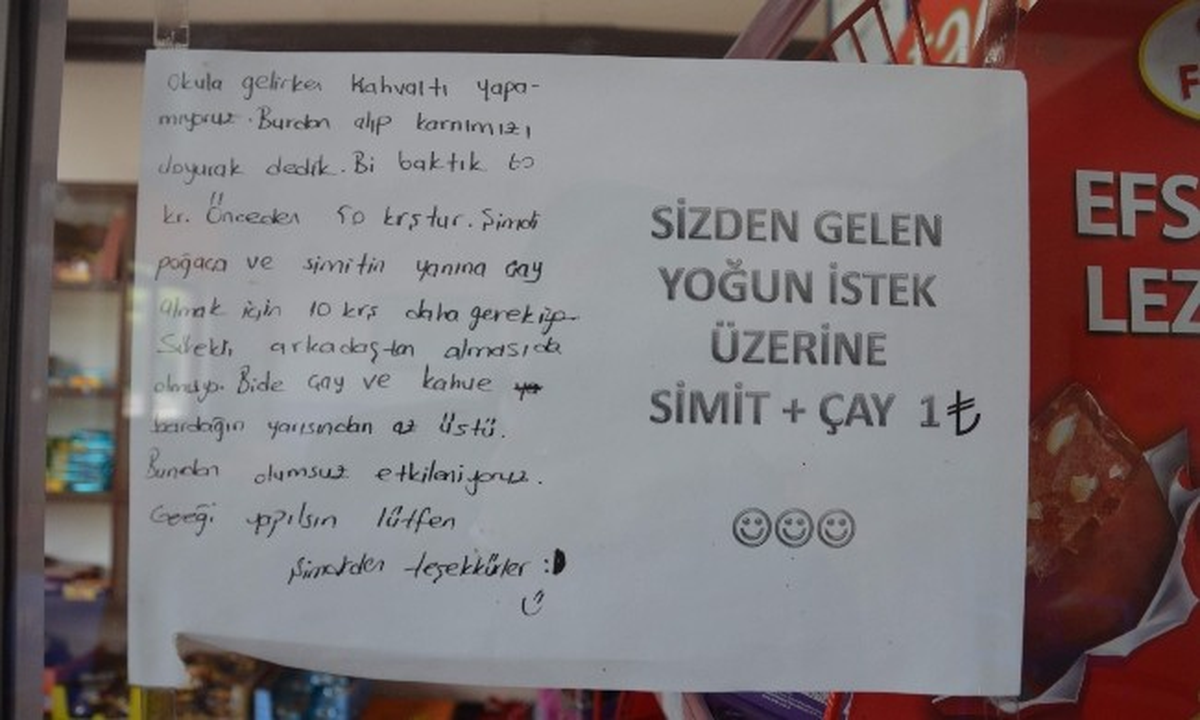 Okula gelirken Kahvaltı yapa-
mıyoruz. Burdan alıp karnımızı
doyurak dedik. Bi baktık 60
kr. Önceden 50 krştur. Şimdi
poğaca ve simitin yanına çay
almak için 10 krş daha gerekiyo.
Sürekli arkadaştan almasıda
olmuyo. Bide çay ve kahve
bardağın yarısından az üstü.
Bundan olumsuz etkileniyoruz.
Gereği yapılsın lütfen
Şimdiden teşekkürler :D
SİZDEN GELEN
YOĞUN İSTEK
ÜZERİNE
SİMİT + ÇAY 1₺
EFS
LEZ